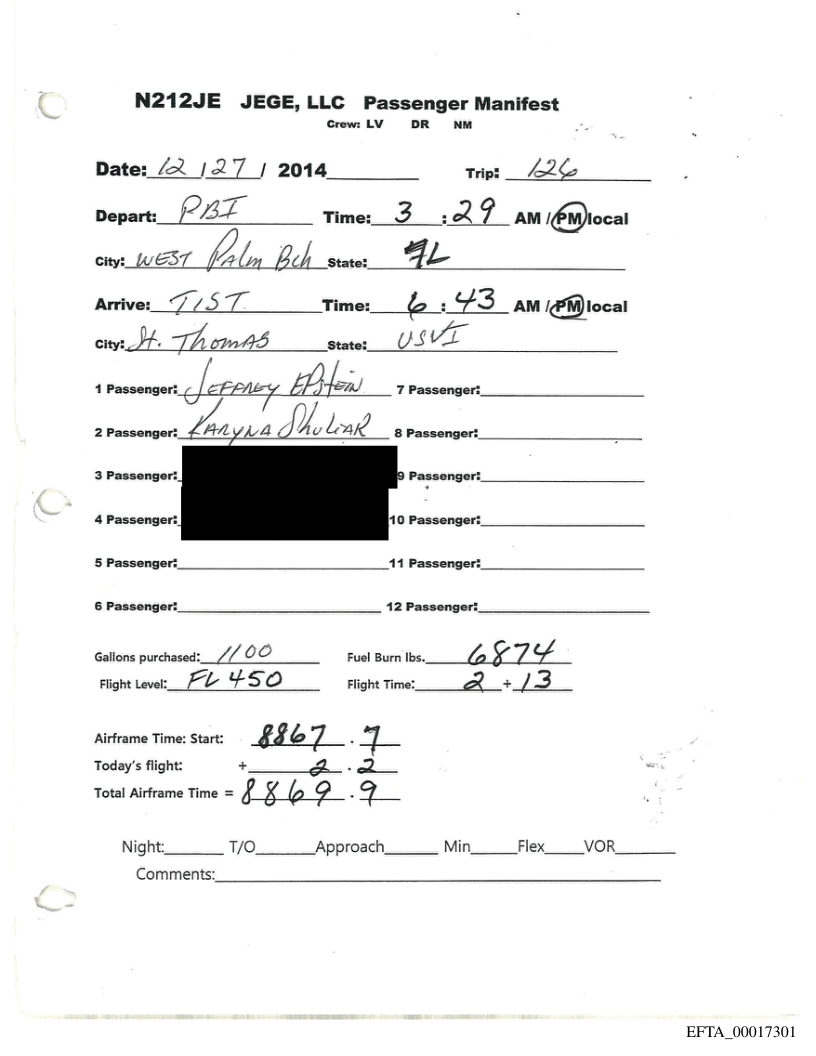 N212JE JEGE, LLC Passenger Manifest
Crew: LV DR NM
Date: 12 / 27 / 2014 Trip: 126
Depart: PBI Time: 3 : 29 AM / PM local
City: WEST Palm Bch State: FL
Arrive: TIST Time: 6 : 43 AM / PM local
City: St. Thomas State: USVI
1 Passenger: JEFFREY EPstEIN 7 Passenger:
2 Passenger: KARYNA ShuliAR 8 Passenger:
3 Passenger: 9 Passenger:
4 Passenger: 10 Passenger:
5 Passenger: 11 Passenger:
6 Passenger: 12 Passenger:
Gallons purchased: 1100 Fuel Burn lbs. 6874
Flight Level: FL 450 Flight Time: 2 + 13
Airframe Time: Start: 8867 . 7
Today's flight: + 2 . 2
Total Airframe Time = 8869 . 9
Night: T/O Approach Min Flex VOR
Comments:
EFTA_00017301